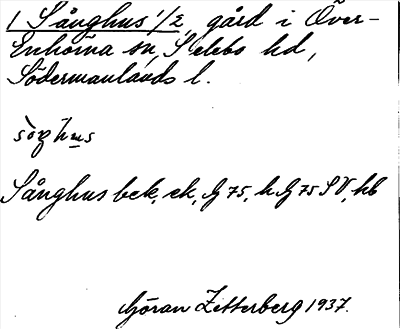 1 Sånghus 1/2, gård i Över-
Enhörna sn, Selebo hd,
Södermanlands l.
Sånghus bek, ek, G 75, h. G 75 SV, hb
Göran Zetterberg 1937.